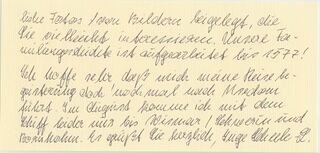 liebe Fotos / von Bildern beigelegt, die
Sie vielleicht interessieren. Unsere Fa-
miliengeschichte ist aufgearbeitet bis 1577!
Ich hoffe sehr daß mich meine Reisebe-
geisterung doch noch mal nach Usedom
führt. Im August komme ich mit dem
Schiff leider nur bis Wismar / Schwerin und
Bornholm. Es grüßt Sie herzlich, Inge